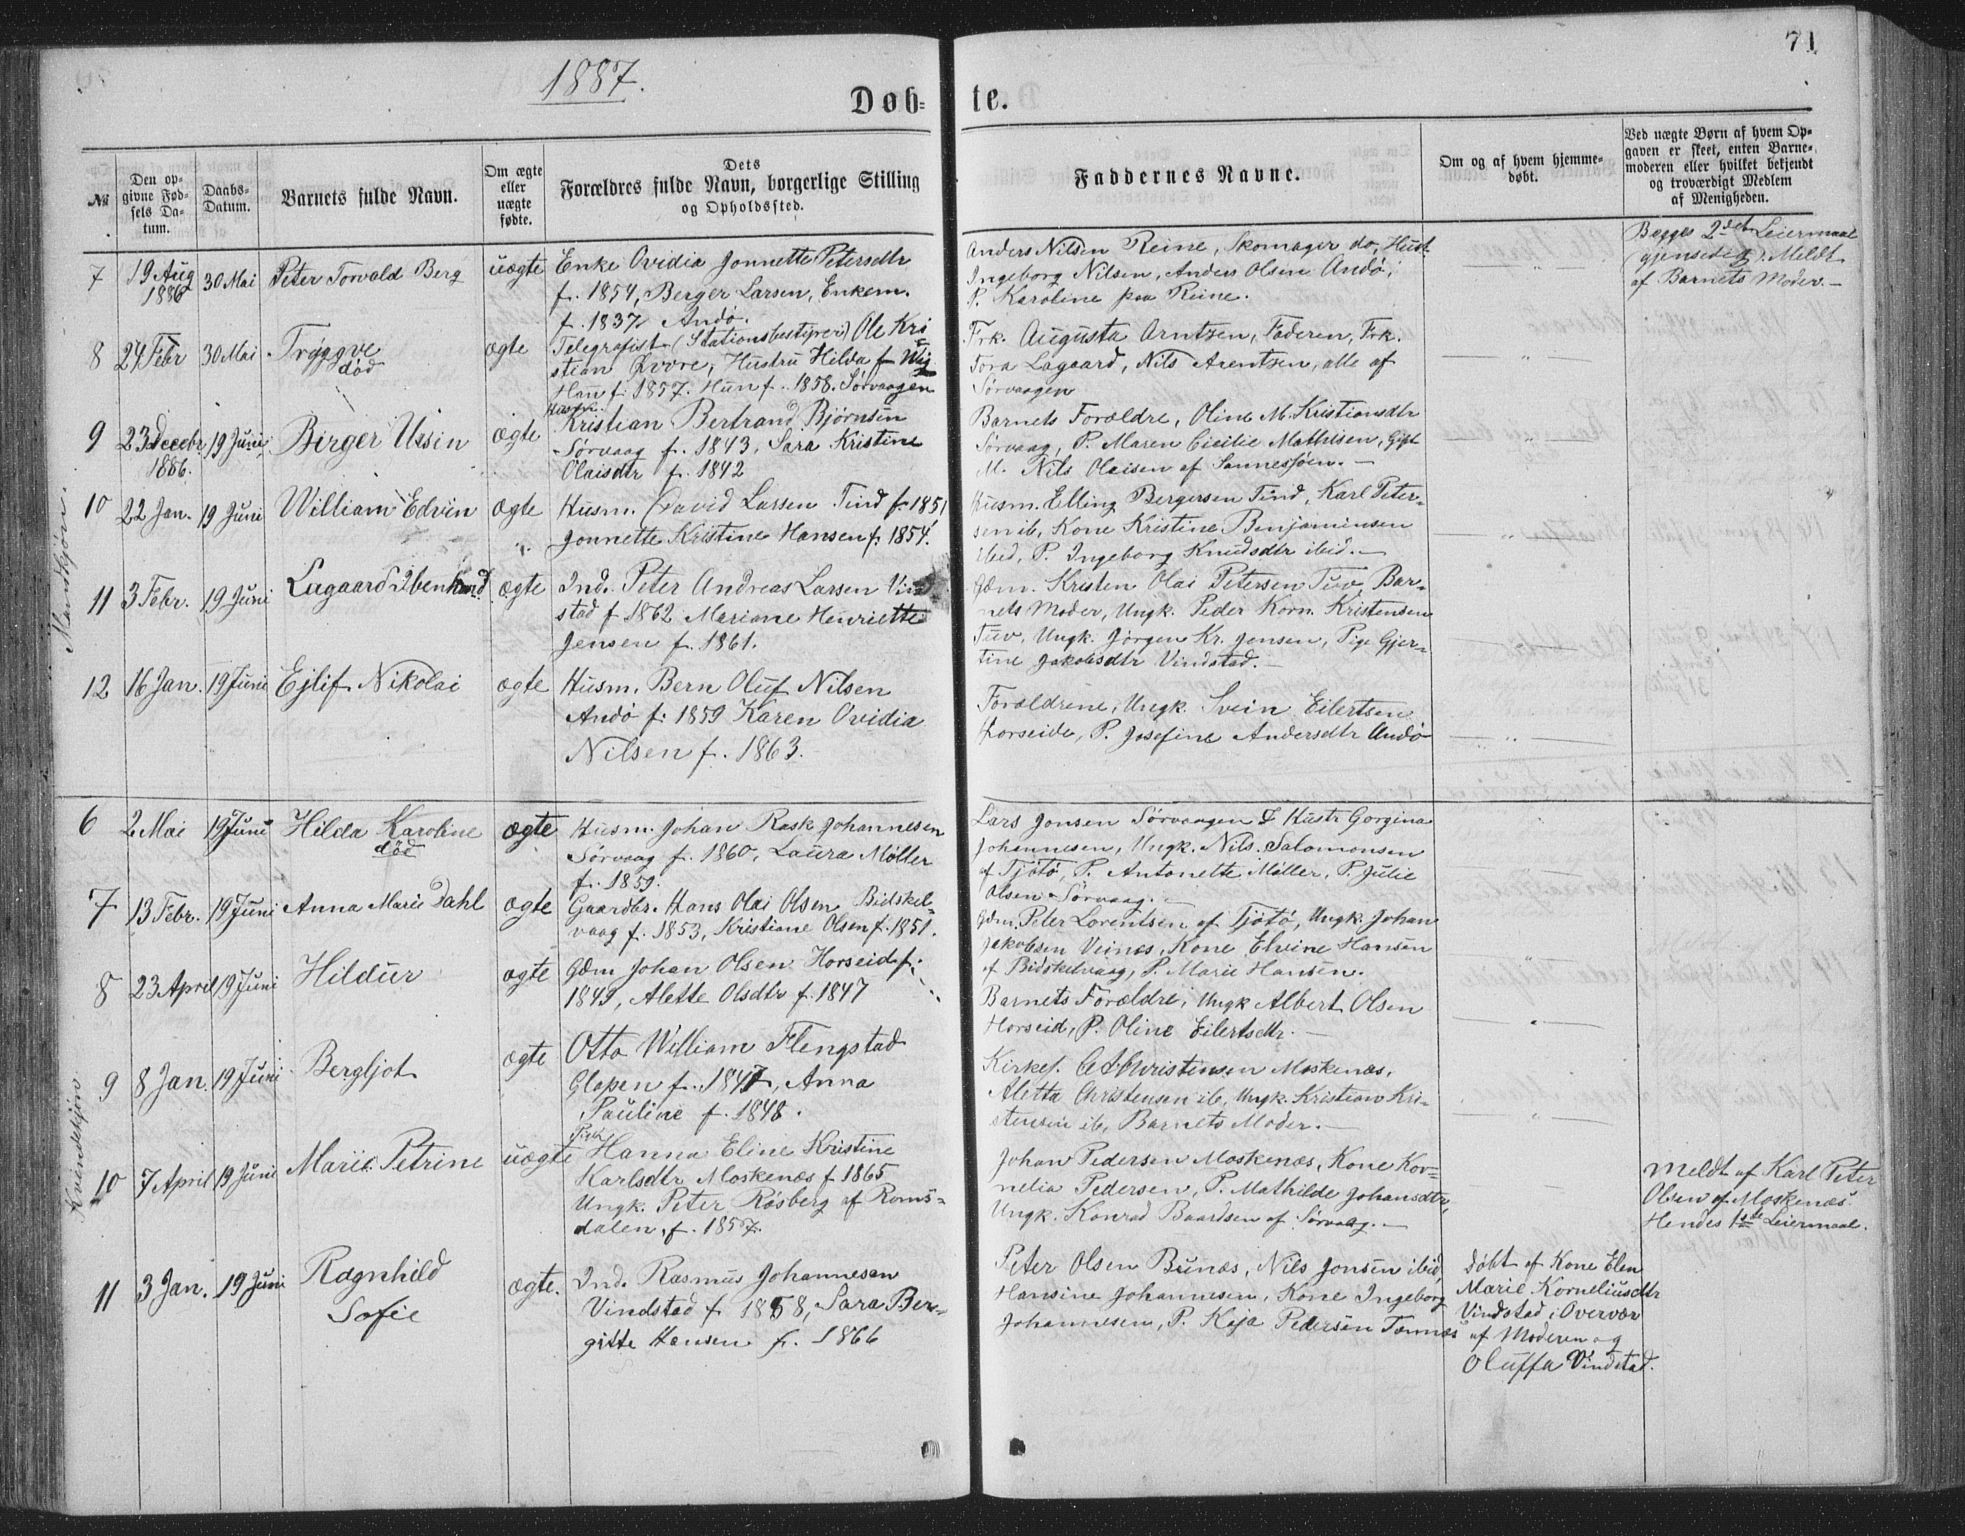 1887.
71
Døb-
te.
№
Den op-
givne Fød-
sels Da-
tum.
Daabs-
Datum.
Barnets fulde Navn.
Om ægte
eller
uægte
fødte.
Dets
Forældres fulde Navn, borgerlige Stilling
og Opholdssted.
Faddernes Navne.
Om og af hvem hjemme-
døbt.
Ved uægte Børn af hvem Op-
gaven er skeet, enten Barne-
moderen eller hvilket bekjendt
og troværdigt Medlem
af Menigheden.
Mandkjøn.
7
19 Aug
1886
30 Mai
Peter Torvald Berg
uægte
Enke Ovidia Jonnette Petersdtr
f. 1854, Berger Larsen, Enkem.
f. 1837 Andø.
Anders Nilsen Reine, Skomager do, Hust.
Ingeborg Nilsen, Anders Olsen Andø,
P. Karoline paa Reine.
Begges 2det Leiermaal
(gjensidig). Meldt
af Barnets Moder.-
8
24 Febr
30 Mai
Trøggve
død
ægte
Telegrafist (Stationsbestyrer) Ole Kri-
stian Qvore, Hustru Hilda f Wig
Han f. 1857. Hun f. 1858. Sørvaagen
Frk. Augusta Arntzen, Faderen, Frk.
Tora Lagaard, Nils Arentzen, alle af
Sørvaagen
9
23 Decebr
1886.
19 Juni
Birger Ussin
ægte
Kristian Bertrand Bjørnsen
Sørvaag f. 1843, Sara Kristine
Olaisdtr f. 1842
Barnets Forældre, Oline M. Kristiansdtr
Sørvaag, P. Maren Cicilie Mathisen, Gift
M. Nils Olaisen af Sannessjøen.-
10
22 Jan.
19 Juni
William Edvin
ægte
Husm. David Larsen Tind f. 1851
Jonnette Kristine Hansen f. 1854.
Husm. Elling Bergersen Tind, Karl Peter-
sen ib, Kone Kristine Benjaminsen
ibid, P. Ingeborg Knudsdtr ibid.-
11
3 Febr.
19 Juni
Lagaard Ibenhard
ægte
Ind. Peter Andreas Larsen Vind
stad f 1862 Mariane Henriette
Jensen f. 1861.
Gdm. Kristen Olai Petersen Tuv, Bar-
nets Moder, Ungk. Peder Korn. Kristensen
Tuv, Ungk. Jørgen Kr. Jensen, Pige Gjer-
tine Jakobsdtr Vindstad.-
12
16 Jan.
19 Juni
Ejlif Nikolai
ægte
Husm. Bern Oluf Nilsen
Andø f. 1859 Karen Ovidia
Nilsen f. 1863.
Forældrene, Ungk. Svein Eilertsen
Horseide, P. Josefine Andersdtr Andø
Kvindekjøn
6
2 Mai
19 Juni
Hilda Karoline
død
ægte
Husm. Johan Rask Johannesen
Sørvaag f. 1860, Laura Møller
f. 1859.
Lars Jonsen Sørvaagen & Hustr Gorgina
Johannesen, Ungk. Nils Salomonsen
af Tjøtø, P. Antonette Møller, P. Julie
Olsen Sørvaag.-
7
13 Febr.
19 Juni
Anna Marie Dahl
ægte
Gaardbr. Hans Olai Olsen Bidskel-
vaag f. 1853, Kristiane Olsen f. 1851.
Gdm. Peter Lorentsen af Tjøtø, Ungk. Johan
Jakobsen Veines, Kone Elvine Hansen
af Bidskelvaag, P. Marie Hansen.
8
23 April
19 Juni
Hildur
ægte
Gdm Johan Olsen Horseid f.
1849, Alette Olsdtr f. 1847
Barnets Forældre, Ungk Albert Olsen
Horseid, P. Oline Eilertsdtr.-
9
8 Jan.
19 Juni
Bergljot
ægte
Otto William Flengstad
Glopen f. 1847, Anna
Pauline f. 1848.
Kirkes. Christensen Moskenæs,
Aletta Christensen ib, Ungk. Kristian Kri-
stensen ib, Barnets Moder.-
10
7 April
19 Juni
Marie Petrine
uægte
Hanna Eline Kristine
Karlsdtr Moskenæs f 1865
Ungk. Peter Røsberg af Roms-
dalen, f. 1857.
Johan Pedersen Moskenæs, Kone Kor-
nelia Pedersen, P. Mathilde Johansdtr,
Ungk. Konrad Baardsen af Sørvaag.-
Meldt af Karl Peter
Olsen af Moskenæs.
Hendes 1ste Leiermaal.
11
3 Jan.
19 Juni
Ragnhild
Sofie
ægte.
Ind. Rasmus Johannesen
Vindstad f 1858, Sara Ber-
gitte Hansen f. 1866
Peter Olsen Bunæs, Nils Jonsen ibid,
Hansine Johannesen, Kone Ingeborg
Johannesen, P. Kaja Pedersen Tennæs
Døbt af Kone Elen
Marie Korneliusdtr
Vindstad i Overvær
af Moderen og
Oluffa Vindstad.